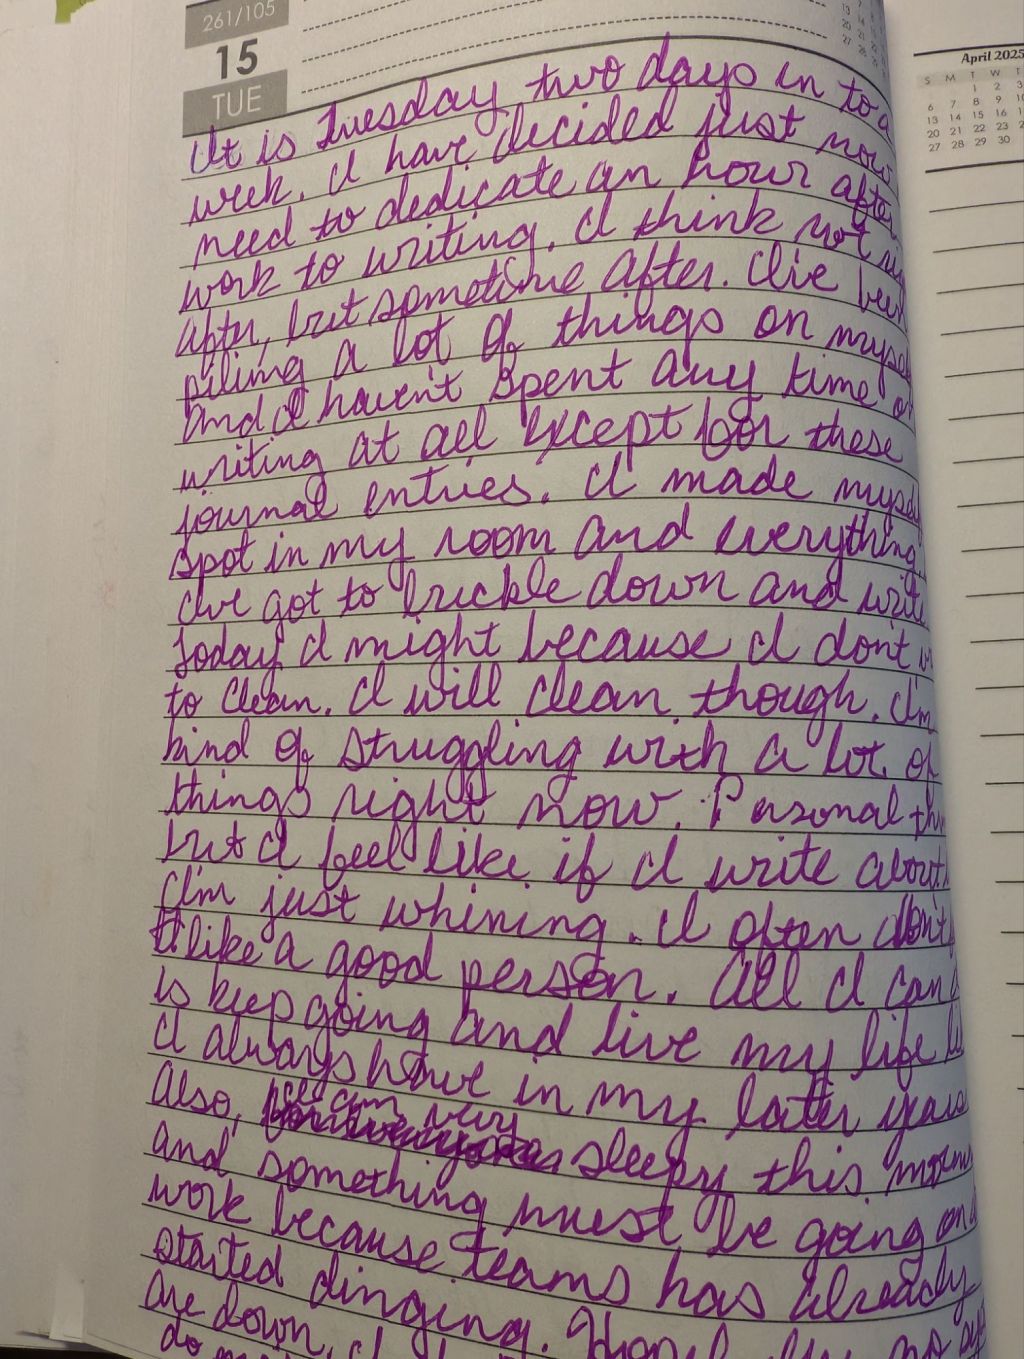 261/105
15
TUE
April 2025
S M T W T
1 2 3
6 7 8 9 10
13 14 15 16
20 21 22 23
27 28 29 30
It is Tuesday two days in to a
week. I have decided just now
need to dedicate an hour after
work to writing. I think not
after, but sometime after. I've been
piling a lot of things on myself
and I haven't spent any time
writing at all except for these
journal entries. I made myself
spot in my room and everything.
I've got to buckle down and write
today I might because I don't
to clean. I will clean though. I'm
kind of struggling with a lot of
things right now. Personal
but I feel like if I write about
I'm just whining. I often don't
like a good person. All I can
is keep going and live my life
I always have in my later years
Also, I am very sleepy this
and something must be going on
work because teams has already
started dinging.
are down, I
do